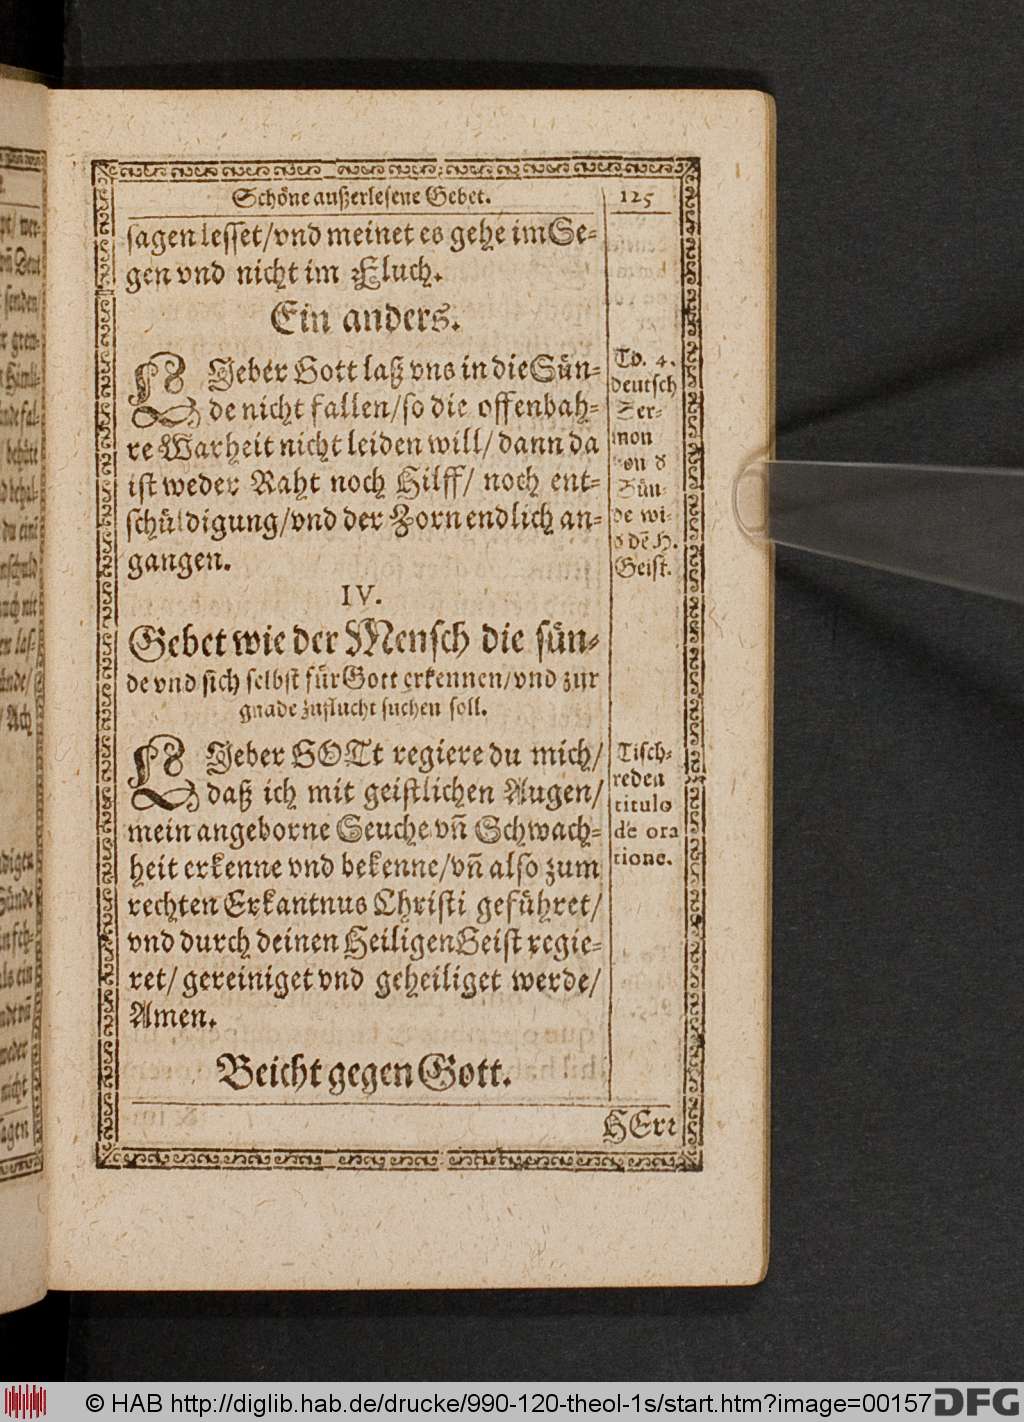 Schöne außerlesene Gebet. 125
sagen lesset/vnd meinet es gehe im Se-
gen vnd nicht im Fluch.
Ein anders.
LIeber Gott laß vns in die Sün-
de nicht fallen/so die offenbah-
re Warheit nicht leiden will/dann da
ist weder Raht noch Hilff/ noch ent-
schüldigung/vnd der Zorn endlich an-
gangen.
To. 4.
deutsch
Ser-
mon
von d
Sün-
de wi-
d dẽ H.
Geist.
IV.
Gebet wie der Mensch die sün-
de vnd sich selbst für Gott erkennen/vnd zur
gnade zuflucht suchen soll.
LIeber GOTt regiere du mich/
daß ich mit geistlichen Augen/
mein angeborne Seuche vñ Schwach-
heit erkenne vnd bekenne/vñ also zum
rechten Erkantnus Christi geführet/
vnd durch deinen Heiligen Geist regie-
ret/ gereiniget vnd geheiliget werde/
Amen.
Tisch-
reden
titulo
de ora
tione.
Beicht gegen Gott.
HErr
© HAB http://diglib.hab.de/drucke/990-120-theol-1s/start.htm?image=00157
DFG